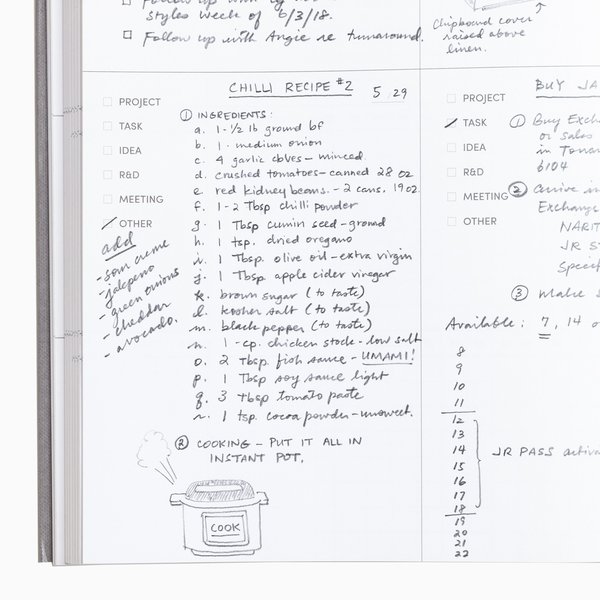 styles week of 6/3/18.
Follow up with Angie re turnaround.
Chipboard cover
raised above
linen.
CHILLI RECIPE #2 5/29
PROJECT
TASK
IDEA
R&D
MEETING
OTHER
add
- sour creme
- jalepeno
- green onions
- cheddar
- avocado.
① INGREDIENTS:
a. 1-½ lb ground bf
b. 1 - medium onion
c. 4 garlic cloves - minced
d. crushed tomatoes - canned 28 oz
e. red kidney beans. - 2 cans. 19 oz.
f. 1-2 Tbsp chilli powder
g. 1 Tbsp cumin seed - ground
h. 1 tsp. dried oregano
i. 1 Tbsp. olive oil - extra virgin
j. 1 Tbsp apple cider vinegar
k. brown sugar (to taste)
l. kosher salt (to taste)
m. black pepper (to taste)
n. 1 - cp. chicken stock - low salt
o. 2 Tbsp. fish sauce - UMAMI!
p. 1 Tbsp soy sauce light
q. 3 Tbsp tomato paste
r. 1 tsp. cocoa powder - unsweet.
② COOKING - PUT IT ALL IN
INSTANT POT.
COOK
BUY JA
PROJECT
TASK
IDEA
R&D
MEETING
OTHER
① Buy Exch
or Sales
in
6104
② arrive in
Exchange
NARIT
JR S
Speci
③ make
Available: 7, 14
8
9
10
11
12
13
14
15
16
17
18
19
20
21
22
JR PASS activa